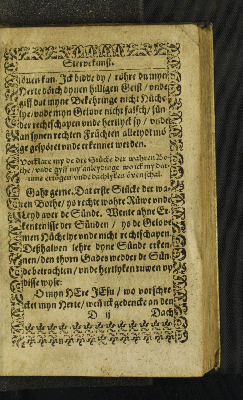 Stervekunst.
löuen kan. Ick bidde dy / röhre du myn
Herte dörch dynen hilligen Geist / vnde
giff dat myne Bekehringe nicht Hüche-
lye / vnde myn Gelove nicht falsch / sün-
der rechtschapen vnde herlyck sy / vnde
an synen rechten Früchten alletydt mö-
ge gespöret vnde erkennet werden.
Vorklare my de dre Stücke der wahren Bo-
the / vnde giff my anleydinge wo ick my dar-
inne ertögen vnde
Gahr gerne. Dat erste Stücke der wa-
ren Bothe / ys rechte wahre Rüwe vnde
Leyd aver de Sünde. Wente ahne Er-
kentenisse der Sünden / ys de Gelove
men Hüchelye vnde nicht rechtschapen.
Deßhalven lehre dyne Sünde erken-
nen / den thorn Gades wedder de Sün-
de betrachten / vnde hertlyken ruwen vp
disse wyse:
O myn HEre JEsu / wo vorschre-
cket myn Herte / wen ick gedencke an den
D ij
Dach